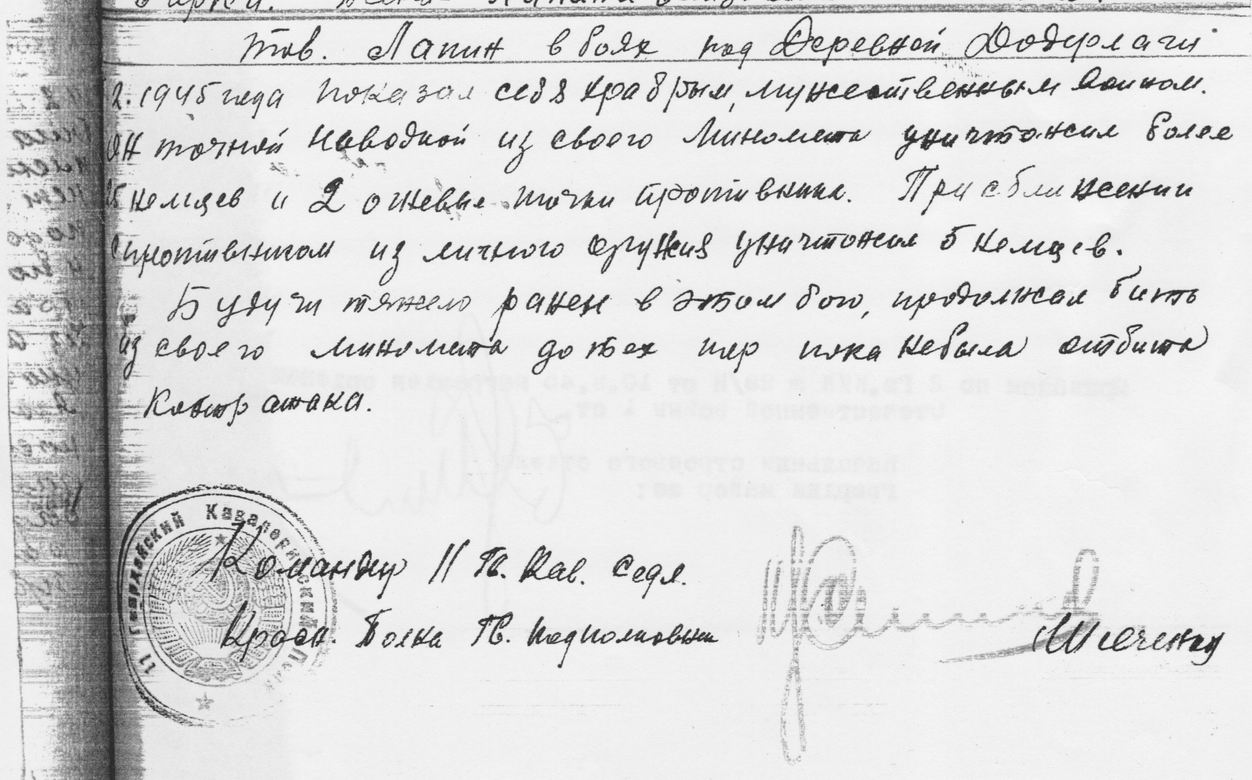 Тов. Лапин в боях под Деревной Додерлаги
2.1945 года показал себя храбрым, мужественным воином.
он точной наводкой из своего Миномета уничтожил более
25 немцев и 2 огневые точки противника. При сближении
с противником из личного оружия уничтожил 5 немцев.
Будучи тяжело ранен в этом бою, продолжал бить
из своего миномета до тех пор пока небыла отбита
Контратака.
11 Гвардейский Кавалерийский Полк
Командир 11 Гв. Кав. Седл.
Красн. Полка Гв. подполковник